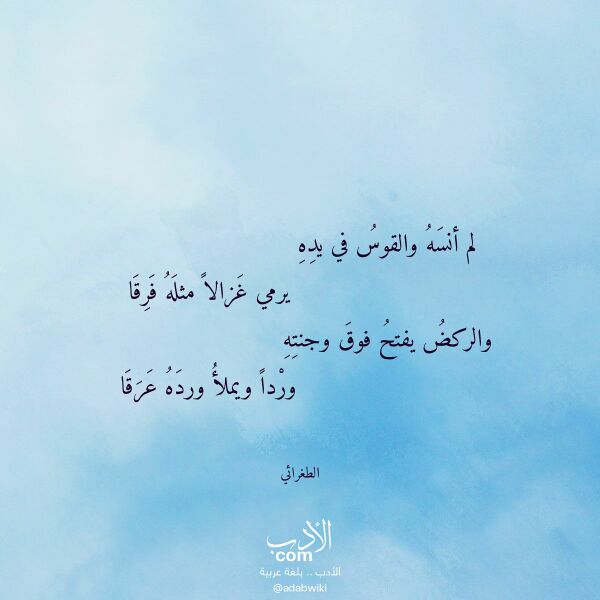 لم أنسَهُ والقوسُ في يدِهِ
يرمي غَزالاً مثلَهُ فَرِقَا
والركضُ يفتحُ فوقَ وجنتِهِ
ورْداً ويملأُ وردَهُ عَرَقَا
الطغرائي
الأدب
com
الأدب .. بلغة عربية
@adabwiki